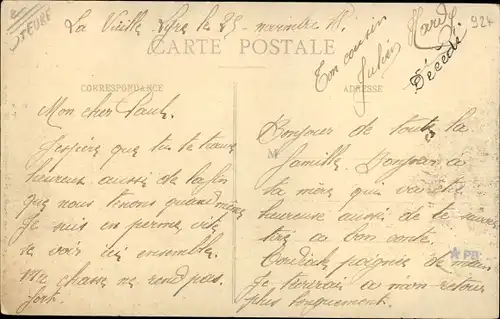 EURE
La Vieille Lyre le 25 novembre 18.
CARTE POSTALE
CORRESPONDANCE
ADRESSE
924
Décédé
Ton cousin
Julien
Mon cher Paul.
J'espère que tu te
heureux aussi de la fin
que nous tenons quand même
Je suis en perme, vite
se voir ici ensemble.
Ma chasse ne rend pas
fort.
Bonjour de toute la
M
famille. Bonjour a
ta mère qui va être
heureuse aussi de te
a bon conte.
Cordiale poignée de main
Je t'écrirai a mon retour
plus longuement.
PB